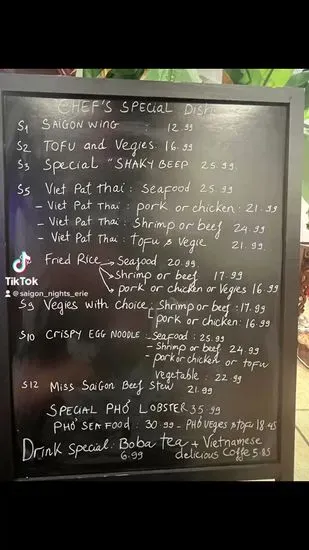 CHEF'S SPECIAL Dish
S1 SAIGON WING : 12.99
S2 TOFU and Vegies 16.99
S3 Special "SHAKY BEEP 25.99
S5 Viet Pat Thai : Seafood 25.99
- Viet Pat Thai : pork or chicken : 21.99
- Viet Pat Thai : Shrimp or beef 24.99
- Viet Pat Thai : tofu & Vegie 21.99
Fried Rice Seafood 20.99
Shrimp or beef 17.99
pork or chicken or Vegies 16.99
TikTok
@saigon_nights_erie
S9 Vegies with Choice : Shrimp or beef : 17.99
pork or chicken : 16.99
S10 CRISPY EGG NOODLE - Seafood : 25.99
- Shrimp or beef 24.99
- pork or chicken or tofu
vegetable : 22.99
S12 Miss Saigon Beef Stew 21.99
SPECIAL PHO LOBSTER 35.99
PHO' SEAFOOD : 30.99 - PHO VEGIES & tofu 18.45
Drink Special : Boba tea + Vietnamese
6.99 delicious Coffe 5.85